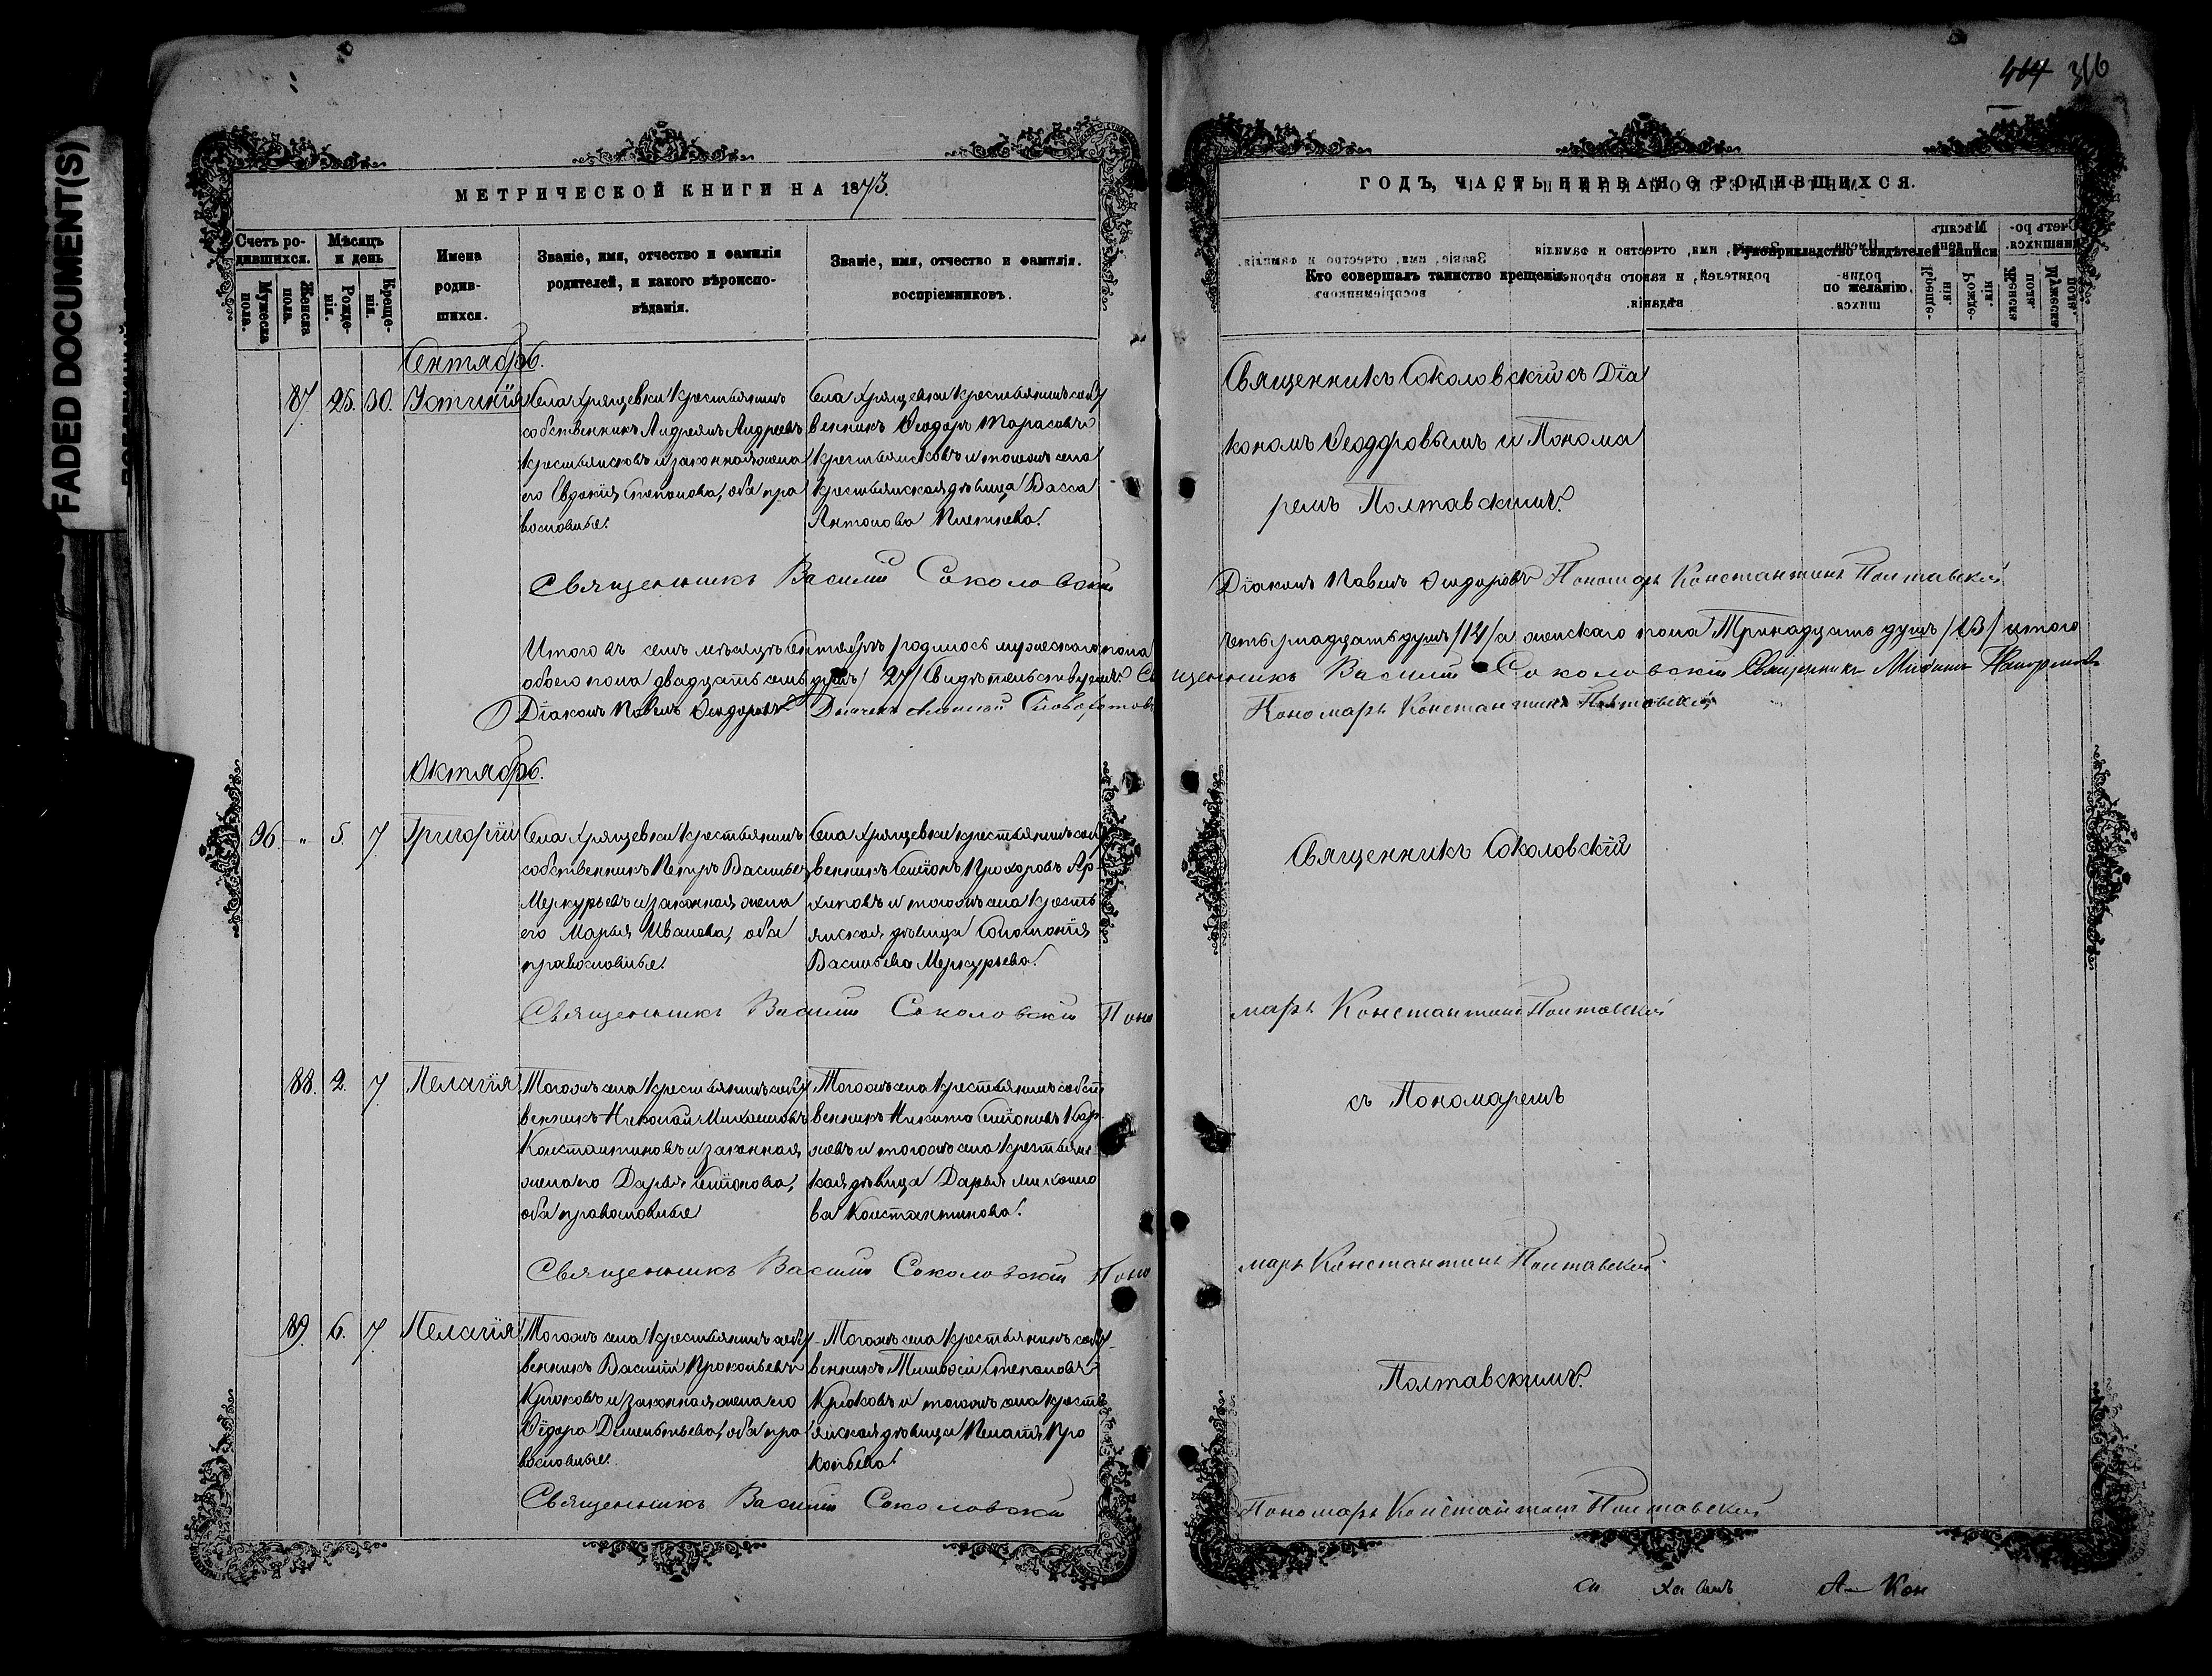 FADED DOCUMENT(S)
464 316
МЕТРИЧЕСКОЙ КНИГИ НА 1873.
Счетъ родившихся.
Мужеска пола.
Женска пола.
Мѣсяцъ и день
Рожденія.
Крещенія.
Имена родившихся.
Званіе, имя, отчество и фамилія родителей, и какого вѣроисповѣданія.
Званіе, имя, отчество и фамилія воспріемниковъ.
Сентябрь.
87. 25. 30. Устинія
Села Хрящевки крестьянинъ
собственникъ Андреянъ Андреевъ
его Евдокія Степанова, оба пра
вославные.
Села Хрящевки крестьянинъ собст
венникъ Ѳеодоръ Тарасовъ
крестьянская дѣвица Васса
Антонова
Священникъ Василій Соколовскій
Итого въ семъ мѣсяцѣ Сентябрѣ родилось мужескаго пола
обоего пола двадцать семь душъ / 27 / Свидѣтельствуемъ: Свя
Діаконъ Павелъ Ѳеодоровъ
Октябрь.
96. " 5. 7. Григорій
Села Хрящевки крестьянинъ
собственникъ Петръ Васильевъ
Меркурьевъ и законная жена
его Марья Иванова, оба
православные.
Села Хрящевки крестьянинъ собст
венникъ Симеонъ Прохоровъ Ар-
хиповъ и тогожъ села кресть
янская дѣвица Соломонія
Васильева Меркурьева.
Священникъ Василій Соколовскій Поно
88. 2. 7. Пелагія
Тогожъ села крестьянинъ собст
венникъ Николай Михайловъ
Константиновъ и законная
жена его Дарья Симеонова,
оба православные
Тогожъ села крестьянинъ собст
венникъ Никита Симеоновъ
и тогожъ села крестьянс
кая дѣвица Дарья Михайло
ва Константинова.
Священникъ Василій Соколовскій Поно
89. 6. 7. Пелагія
Тогожъ села крестьянинъ собст
венникъ Василій Прокопьевъ
Крюковъ и законная жена его
Ѳедора Дементьева, оба пра
вославные.
Тогожъ села крестьянинъ собст
венникъ Тимоѳей Степановъ
Крюковъ и тогожъ села кресть
янская дѣвица Пелагія Про
копьева.
Священникъ Василій Соколовскій
ГОДЪ, ЧАСТЬ ПЕРВАЯ О РОДИВШИХСЯ.
Кто совершалъ таинство крещенія.
Рукоприкладство свидѣтелей записи по желанію.
Священникъ Соколовскій съ Діа
кономъ Ѳеодоровымъ и Понома
ремъ Полтавскимъ.
Діаконъ Павелъ Ѳеодоровъ Пономарь Константинъ Полтавской
четырнадцать душъ /14/ а женскаго пола Тринадцать душъ /13/ итого
щенникъ Василій Соколовскій Священникъ Михаилъ
Пономарь Константинъ Полтавскій
Священникъ Соколовскій
марь Константинъ Полтавской
съ Пономаремъ
марь Константинъ Полтавской
Полтавскимъ.
Пономарь Константинъ Полтавской